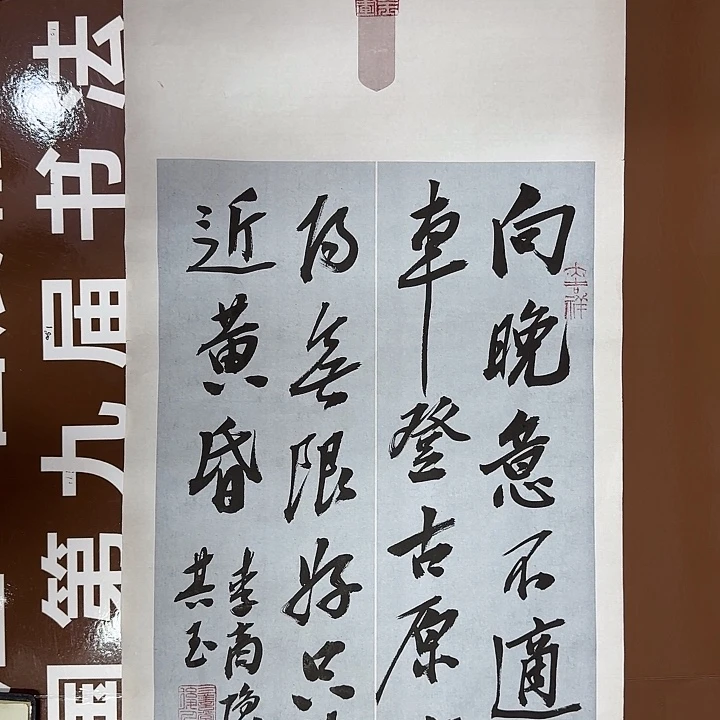 向晚意不適
車登古原
陽無限好只
近黄昏
李商隐
其玉
大吉祥
第九届书法